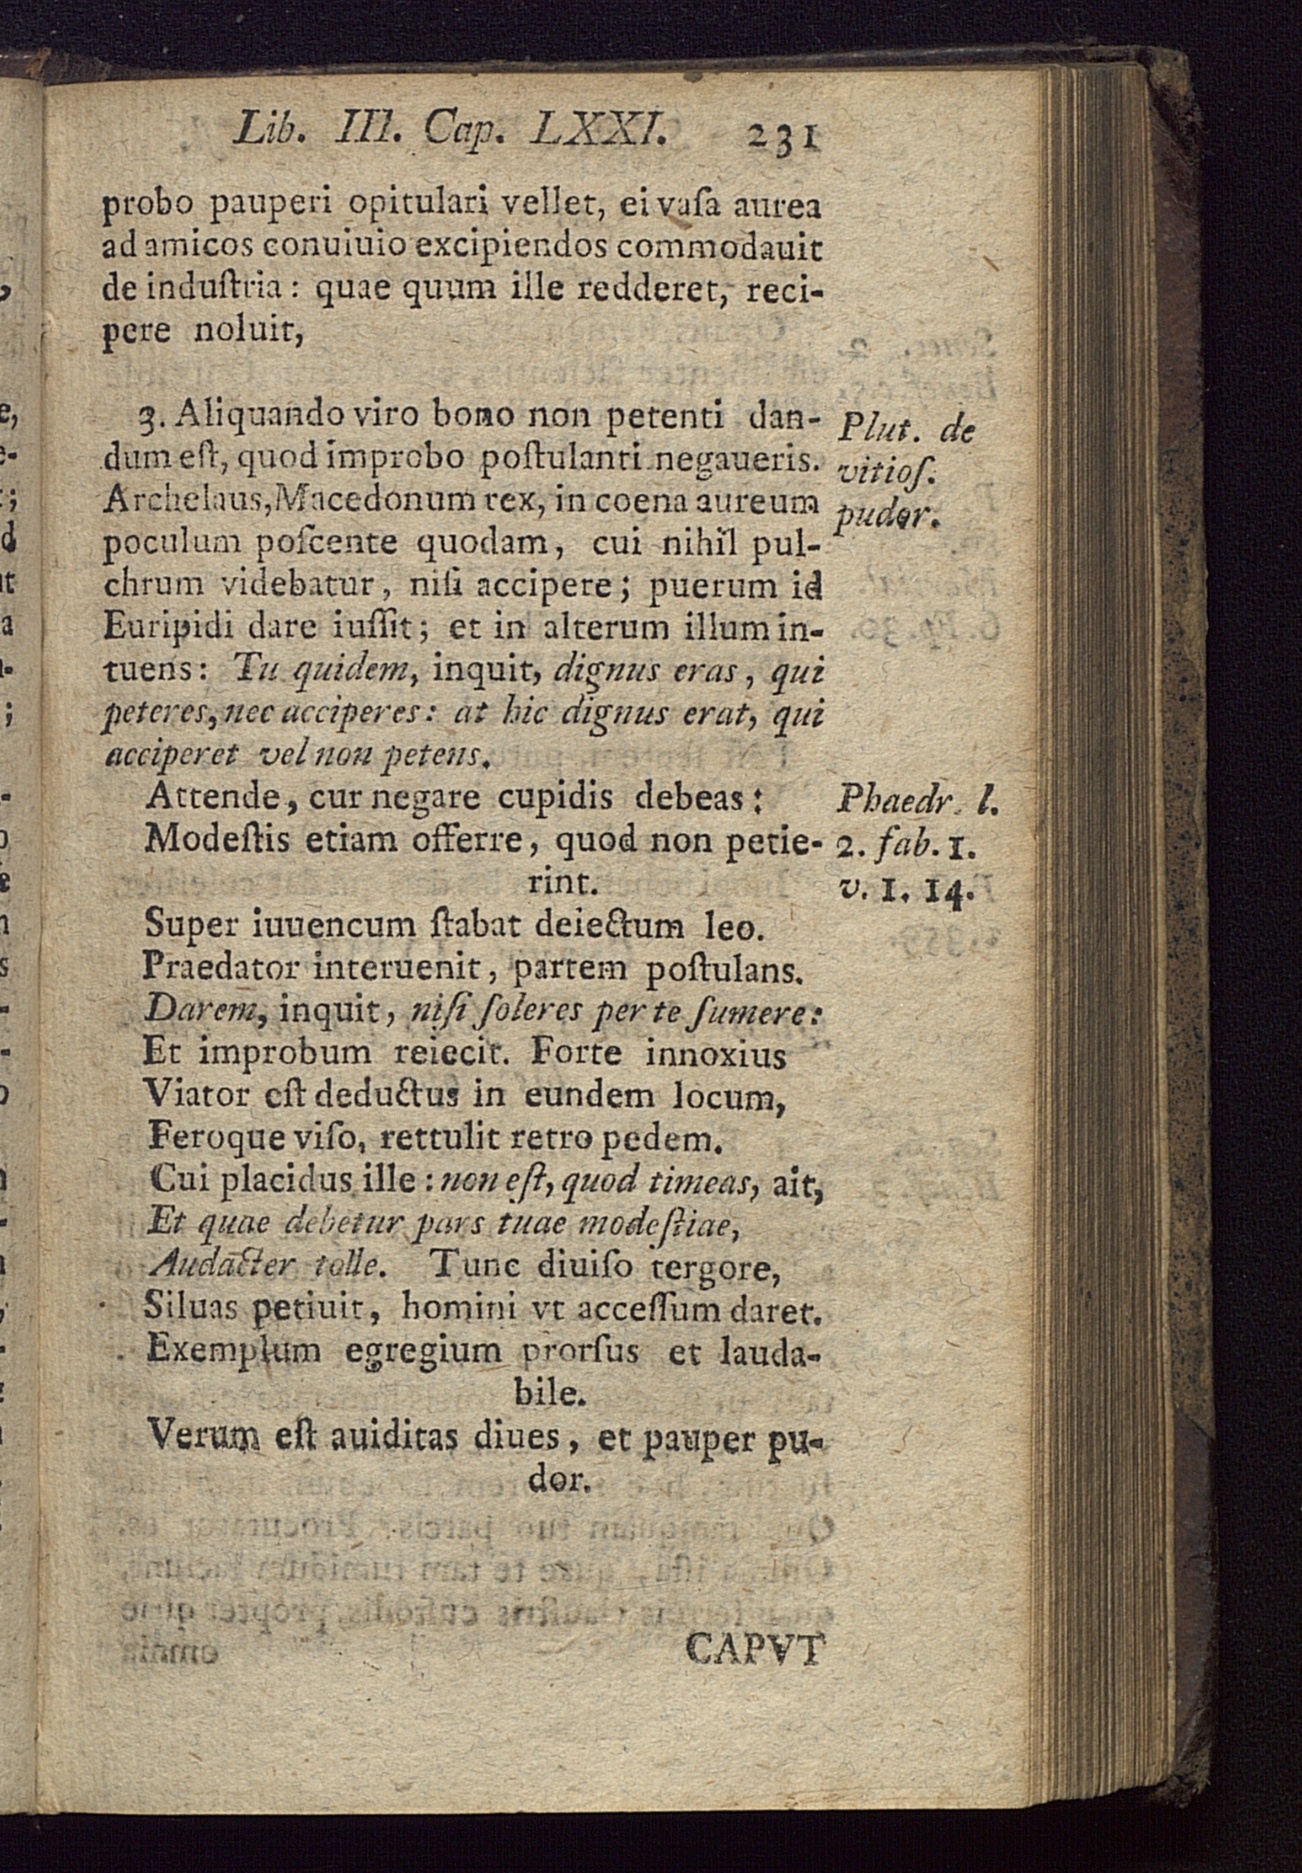 Lib. III. Cap. LXXI. 231
probo pauperi opitulari vellet, ei vaſa aurea
ad amicos conuiuio excipiendos commodauit
de induſtria: quae quum ille redderet, reci-
pere noluit,
3. Aliquando viro bono non petenti dan-
dum eſt, quod improbo poſtulanti negaueris.
Archelaus, Macedonum rex, in coena aureum
poculum poſcente quodam, cui nihil pul-
chrum videbatur, niſi accipere; puerum id
Euripidi dare iuſſit; et in alterum illum in-
tuens: Tu quidem, inquit, dignus eras, qui
peteres, nec acciperes: at hic dignus erat, qui
acciperet vel non petens.
Plut. de
vitioſ.
pudor.
Attende, cur negare cupidis debeas:
Modeſtis etiam offerre, quod non petie-
rint.
Phaedr. l.
2. fab. 1.
v. 1. 14.
Super iuuencum ſtabat deiectum leo.
Praedator interuenit, partem poſtulans.
Darem, inquit, niſi ſoleres per te ſumere:
Et improbum reiecit. Forte innoxius
Viator eſt deductus in eundem locum,
Feroque viſo, rettulit retro pedem.
Cui placidus ille: non eſt, quod timeas, ait,
Et quae debetur pars tuae modeſtiae,
Audacter tolle. Tunc diuiſo tergore,
Siluas petiuit, homini vt acceſſum daret.
Exemplum egregium prorſus et lauda-
bile.
Verum eſt auiditas diues, et pauper pu-
dor.
CAPVT